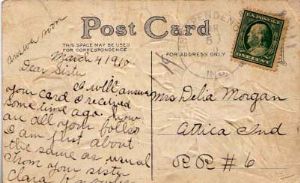 answer soon
Post Card
THIS SPACE MAY BE USED
FOR CORRESPONDENCE
FOR ADDRESS ONLY
March 9 1910
Dear Sister
I will answer
your card I received
some time ago how
are all your folks
I am just about
the same as usual
from your sis
Clara
Mrs Delia Morgan
Attica Ind
RR #6